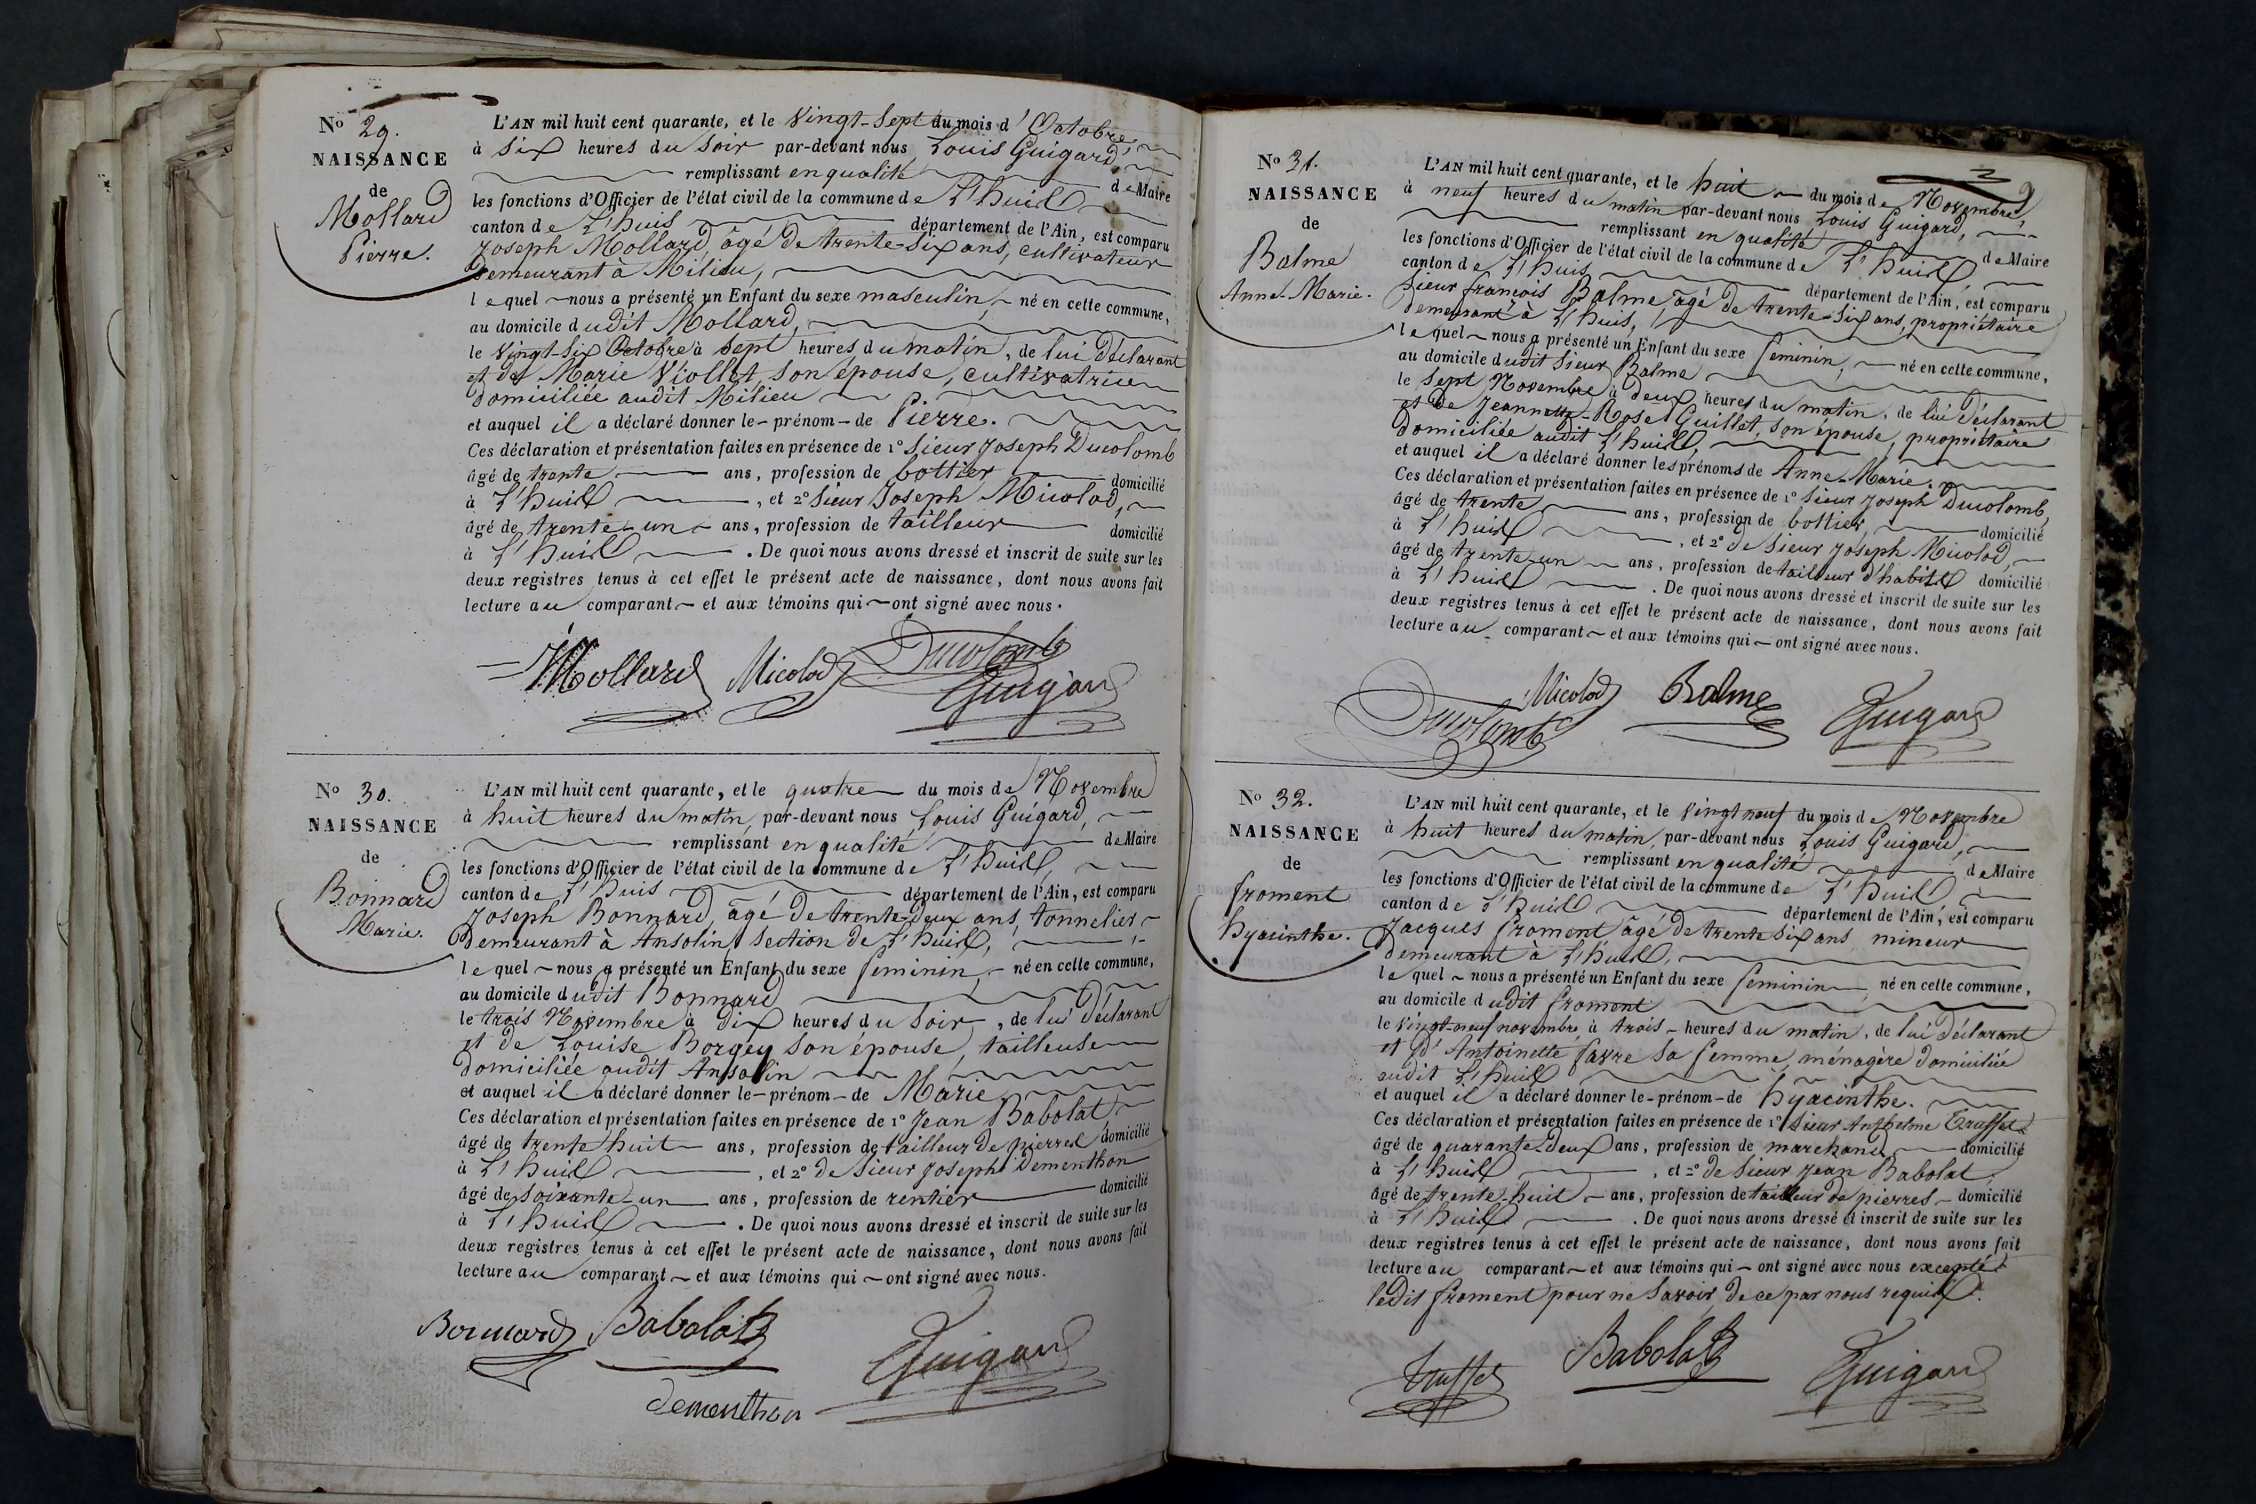 No 29.
NAISSANCE
de
Mollard
Pierre.
L'AN mil huit cent quarante, et le Vingt-Sept du mois d'Octobre,
à six heures du soir par-devant nous Louis Guigard,
remplissant en qualité de Maire
les fonctions d'Officier de l'état civil de la commune de L'huis
canton de L'huis département de l'Ain, est comparu
Joseph Mollard, âgé de trente-six ans, cultivateur
demeurant à Milieu,
lequel nous a présenté un Enfant du sexe masculin, né en cette commune,
au domicile dudit Mollard,
le vingt-six Octobre à sept heures du matin, de lui déclarant
et de Marie Viollet, son épouse, cultivatrice
domiciliée audit Milieu
et auquel il a déclaré donner le prénom de Pierre.
Ces déclaration et présentation faites en présence de 1º Sieur Joseph Ducolomb
âgé de trente ans, profession de bottier domicilié
à L'huis, et 2º Sieur Joseph Micolod,
âgé de trente-un ans, profession de tailleur domicilié
à L'huis. De quoi nous avons dressé et inscrit de suite sur les
deux registres tenus à cet effet le présent acte de naissance, dont nous avons fait
lecture au comparant et aux témoins qui ont signé avec nous.
Mollard Micolod Ducolomb
Guigard
No 30.
NAISSANCE
de
Bonnard
Marie.
L'AN mil huit cent quarante, et le quatre du mois de Novembre
à huit heures du matin, par-devant nous Louis Guigard,
remplissant en qualité de Maire
les fonctions d'Officier de l'état civil de la commune de L'huis,
canton de L'huis département de l'Ain, est comparu
Joseph Bonnard, âgé de trente-deux ans, tonnelier
demeurant à Ansolin, section de L'huis,
lequel nous a présenté un Enfant du sexe feminin, né en cette commune,
au domicile dudit Bonnard
le trois Novembre à dix heures du soir, de lui déclarant
et de Louise Borgey son épouse, tailleuse
domiciliée audit Ansolin
et auquel il a déclaré donner le prénom de Marie
Ces déclaration et présentation faites en présence de 1º Jean Babolat
âgé de trente huit ans, profession de tailleur de pierres domicilié
à L'huis, et 2º de Sieur Joseph Dementhon
âgé de soixante-un ans, profession de rentier domicilié
à L'huis. De quoi nous avons dressé et inscrit de suite sur les
deux registres tenus à cet effet le présent acte de naissance, dont nous avons fait
lecture au comparant et aux témoins qui ont signé avec nous.
Bonnard Babolat
Guigard
Dementhon
No 31.
NAISSANCE
de
Balme
Anne-Marie.
L'AN mil huit cent quarante, et le huit du mois de Novembre,
à neuf heures du matin par-devant nous Louis Guigard,
remplissant en qualité de Maire
les fonctions d'Officier de l'état civil de la commune de L'huis,
canton de L'huis département de l'Ain, est comparu
Sieur françois Balme, âgé de trente-six ans, propriétaire
demeurant à L'huis,
lequel nous a présenté un Enfant du sexe feminin, né en cette commune,
au domicile dudit Sieur Balme
le sept Novembre à deux heures du matin, de lui déclarant
et de Jeannette-Rose Guillet, son épouse, propriétaire
domiciliée audit L'huis,
et auquel il a déclaré donner les prénoms de Anne-Marie.
Ces déclaration et présentation faites en présence de 1º Sieur Joseph Ducolomb,
âgé de trente ans, profession de bottier, domicilié
à L'huis, et 2º de Sieur Joseph Micolod,
âgé de trente-un ans, profession de tailleur d'habits domicilié
à L'huis. De quoi nous avons dressé et inscrit de suite sur les
deux registres tenus à cet effet le présent acte de naissance, dont nous avons fait
lecture au comparant et aux témoins qui ont signé avec nous.
Micolod Balme
Ducolomb Guigard
No 32.
NAISSANCE
de
froment
hyacinthe.
L'AN mil huit cent quarante, et le vingt neuf du mois de Novembre
à huit heures du matin, par-devant nous Louis Guigard,
remplissant en qualité de Maire
les fonctions d'Officier de l'état civil de la commune de L'huis
canton de L'huis département de l'Ain, est comparu
Jacques froment âgé de trente six ans mineur
demeurant à L'huis,
lequel nous a présenté un Enfant du sexe feminin né en cette commune,
au domicile dudit froment
le vingt-neuf novembre à trois heures du matin, de lui déclarant
et d'Antoinette favre sa femme, ménagère domiciliée
audit L'huis
et auquel il a déclaré donner le prénom de hyacinthe.
Ces déclaration et présentation faites en présence de 1º Sieur Anthelme Truffet
âgé de quarante-deux ans, profession de marchand domicilié
à L'huis, et 2º de Sieur Jean Babolat,
âgé de trente-huit ans, profession de tailleur de pierres domicilié
à L'huis. De quoi nous avons dressé et inscrit de suite sur les
deux registres tenus à cet effet le présent acte de naissance, dont nous avons fait
lecture au comparant et aux témoins qui ont signé avec nous excepté
ledit froment pour ne savoir, de ce par nous requis.
Truffet Babolat Guigard